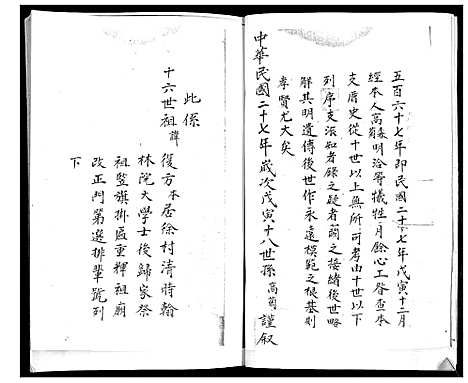 五百六十七年即民國二十七年戊寅十二月
經本人高蘇明洽等犧牲月餘心工督查本
支曆史從十世以上無所可考由十世以下
列序支派知者錄之疑者蘭之接緒後世略
解其明遺傳後世作永遠模範之根基則
孝賢尤大矣
中華民國二十七年歲次戊寅十八世孫高蘭謹叙
此係
十六世祖諱復方本居徐村清時翰
林院大學士後歸家祭
祖竪旗掛匾重釋祖廟
改正門第選排輩號列
下